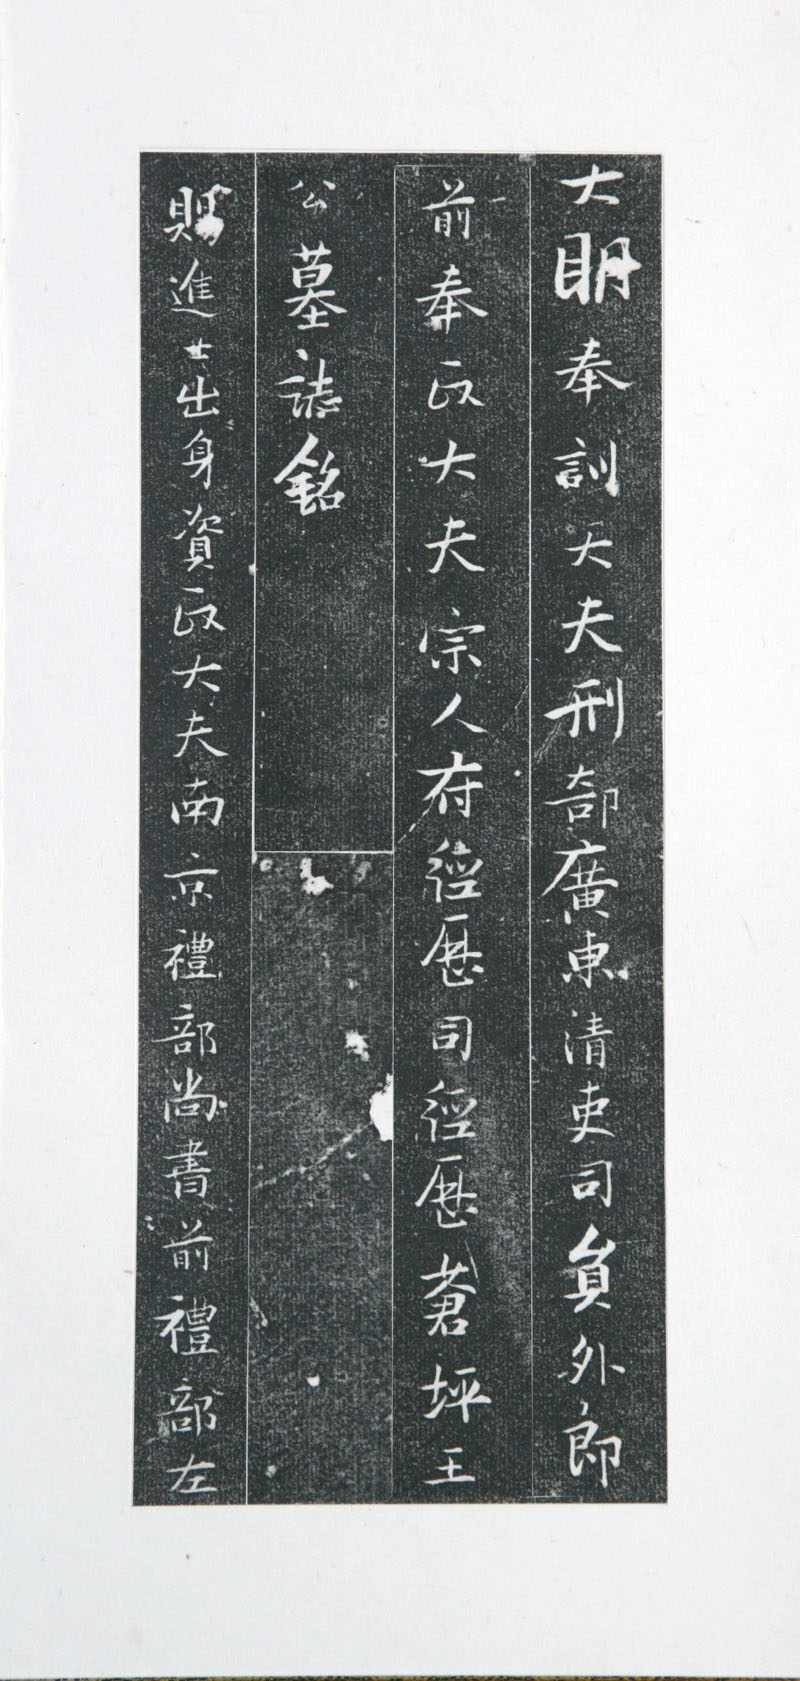 大明奉訓大夫刑部廣東清吏司員外郎
前奉政大夫宗人府經歷司經歷蒼坪王
公墓誌銘
賜進士出身資政大夫南京禮部尚書前禮部左